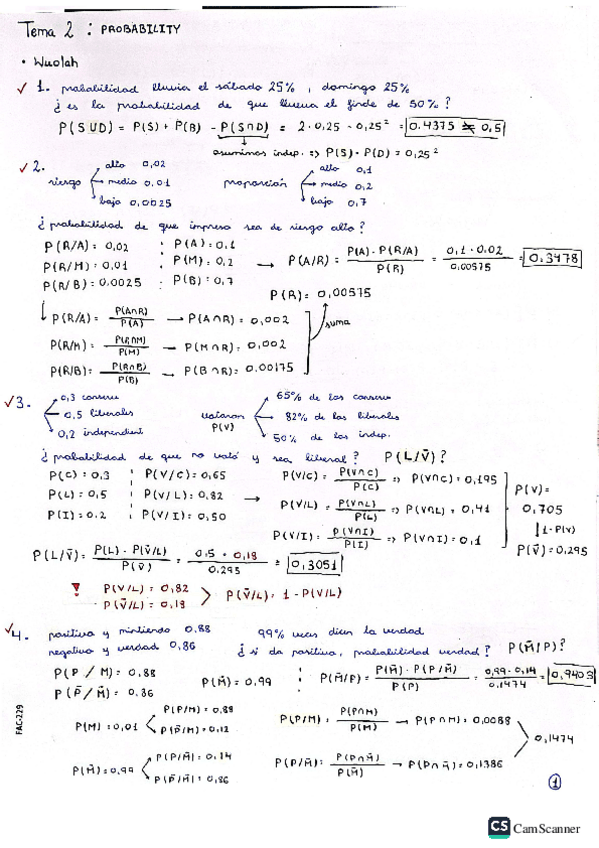 Tema 2 : PROBABILITY
• Wuolah
✓ 1. probabilidad lluvia el sábado 25% , domingo 25%
¿es la probabilidad de que llueva el finde de 50%?
P(SUD) = P(S) + P(B) - P(S∩D) = 2·0,25 - 0,25² = 0.4375 ≠ 0,5
asumimos indep. => P(S)·P(D) = 0,25²
✓ 2. riesgo alto 0,02 medio 0,01 bajo 0,0025 proporción alto 0,1 medio 0,2 bajo 0,7
¿probabilidad de que impresa sea de riesgo alto?
P(R/A) = 0,02 P(A) = 0,1
P(R/M) = 0,01 P(M) = 0,2 → P(A/R) = P(A)·P(R/A) / P(R) = 0,1·0.02 / 0.00575 = 0.3478
P(R/B) = 0.0025 P(B) = 0,7
P(R) = 0,00575
P(R/A) = P(A∩R) / P(A) → P(A∩R) = 0,002 suma
P(R/M) = P(R∩M) / P(M) → P(M∩R) = 0,002
P(R/B) = P(R∩B) / P(B) → P(B∩R) = 0.00175
✓ 3. 0,3 conserv 0,5 liberales 0,2 independient votaron P(V) 65% de los conserv 82% de los liberales 50% de los indep.
¿probabilidad de que no votó y sea liberal? P(L/V̄)?
P(C) = 0,3 P(V/C) = 0,65 P(V/C) = P(V∩C) / P(C) => P(V∩C) = 0,195
P(L) = 0,5 P(V/L) = 0.82 → P(V/L) = P(V∩L) / P(L) => P(V∩L) = 0,41
P(I) = 0.2 P(V/I) = 0,50 P(V/I) = P(V∩I) / P(I) => P(V∩I) = 0,1
P(V) = 0,705
1-P(V)
P(V̄) = 0.295
P(L/V̄) = P(L)·P(V̄/L) / P(V̄) = 0.5·0,18 / 0.295 = 0,3051
! P(V/L) = 0,82
P(V̄/L) = 0.18 > P(V̄/L) = 1 - P(V/L)
✓ 4. positiva y mintiendo 0.88 99% veces dicen la verdad
negativo y verdad 0,86 ¿si da positiva, probabilidad verdad? P(M̄/P)?
P(P/M) = 0,88
P(P̄/M̄) = 0.86 P(M̄) = 0.99 P(M̄/P) = P(M̄)·P(P/M̄) / P(P) = 0,99·0,14 / 0.1474 = 0,9403
P(M) = 0,01 P(P/M) = 0.88 P(P̄/M) = 0,12 P(P/M) = P(P∩M) / P(M) → P(P∩M) = 0.0088
0,1474
P(M̄) = 0,99 P(P/M̄) = 0.14 P(P̄/M̄) = 0,86 P(P/M̄) = P(P∩M̄) / P(M̄) → P(P∩M̄) = 0,1386
1
FAC-229
CS CamScanner